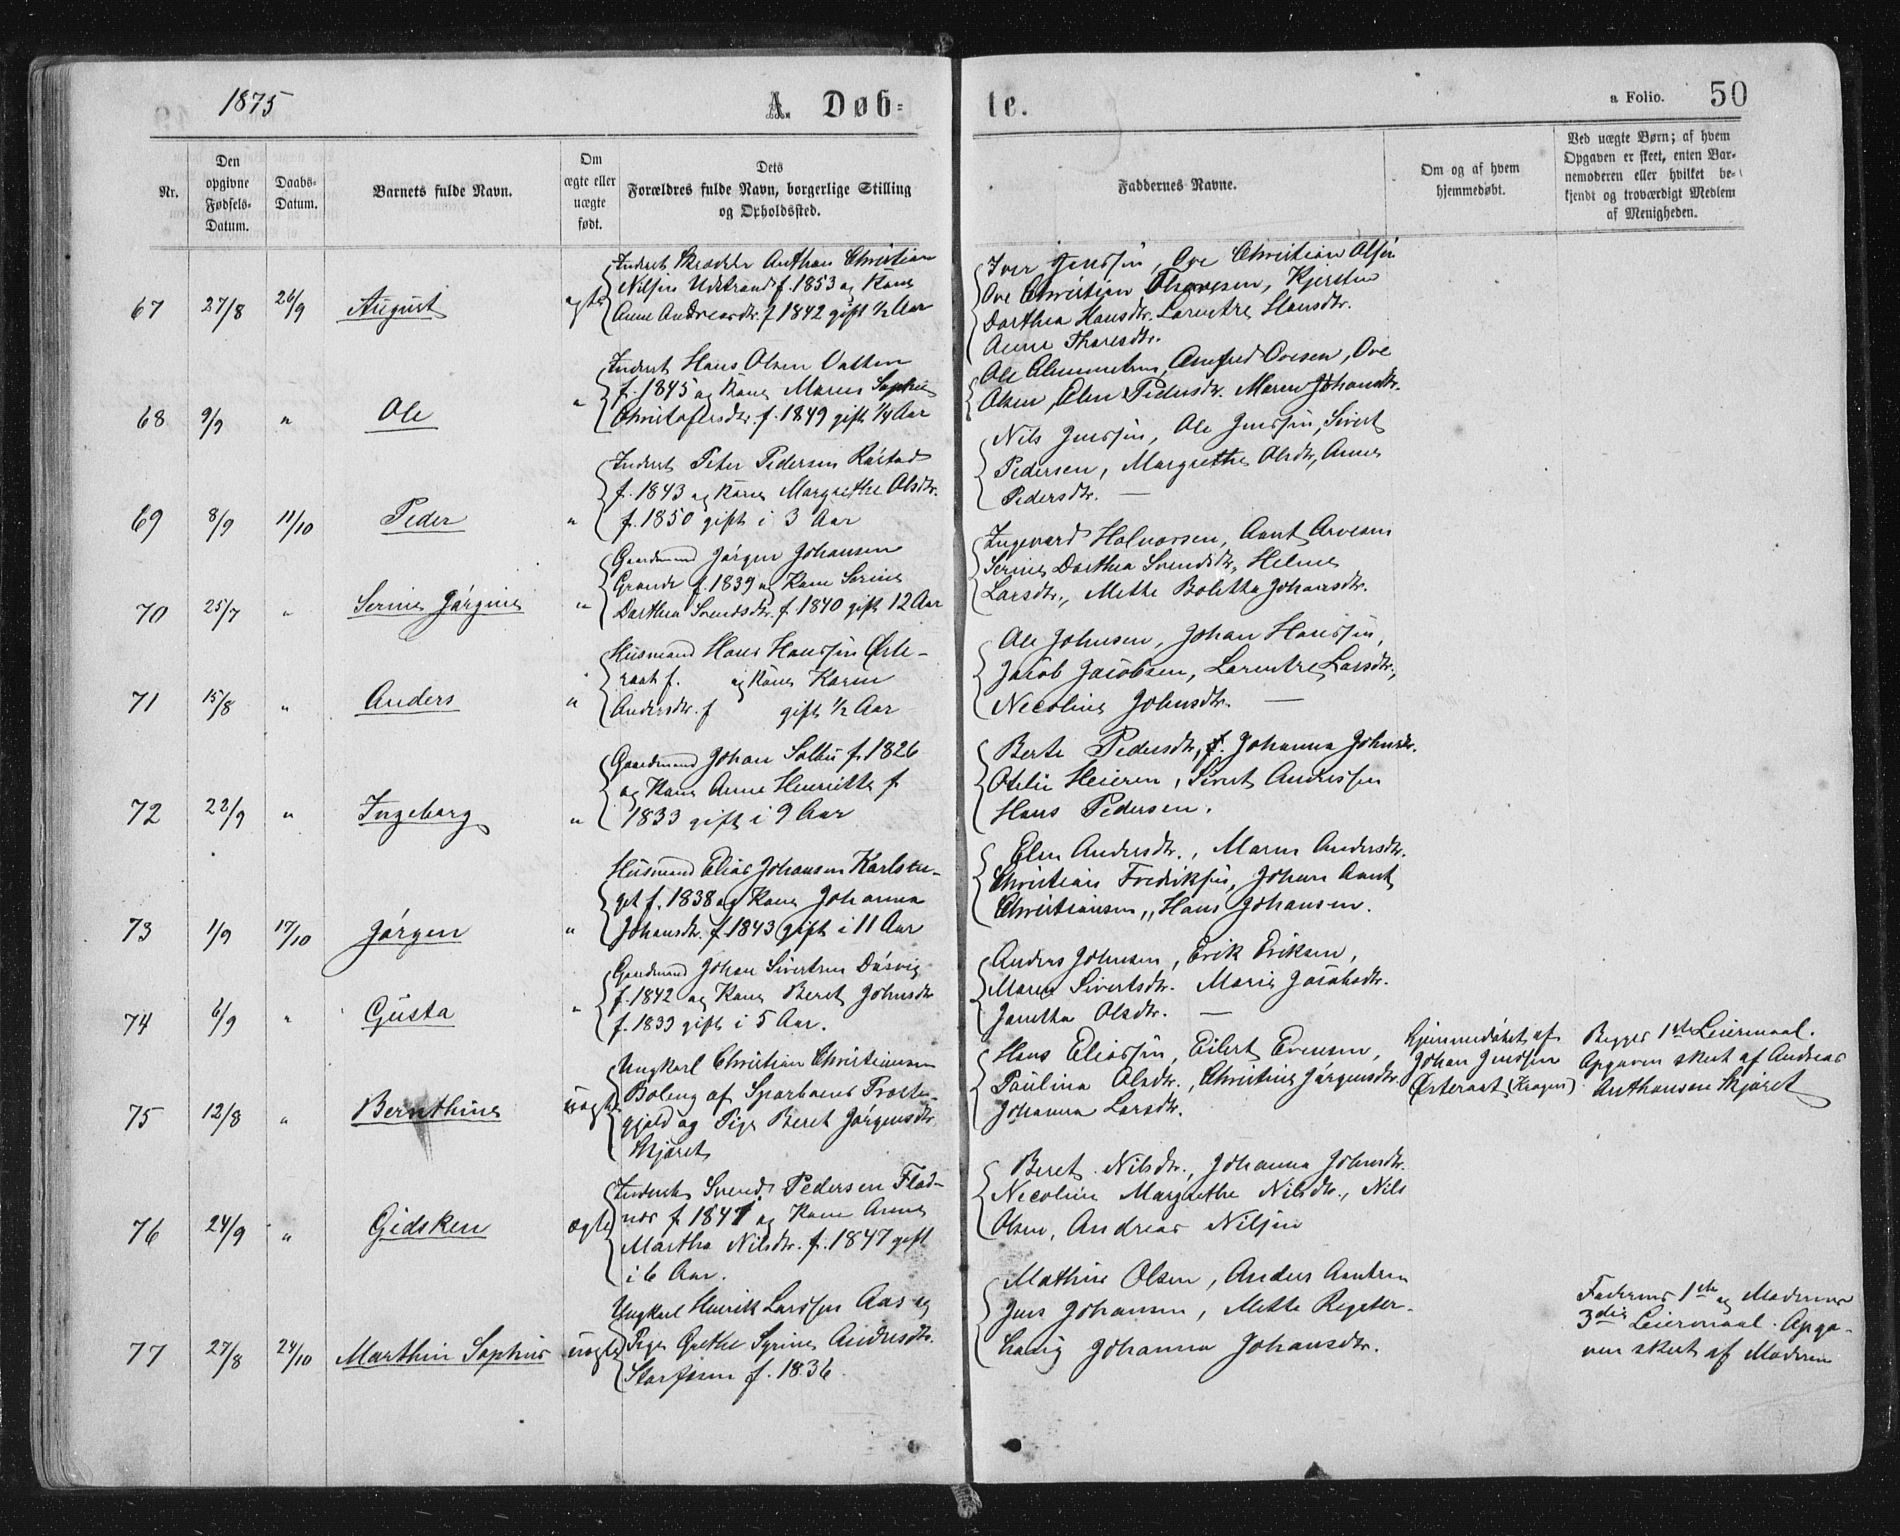 1875
A. Døb=
te.
a Folio. 50
Nr.
Den opgivne Fødsels-Datum.
Daabs-Datum.
Barnets fulde Navn.
Om ægte eller uægte født.
Dets Forældres fulde Navn, borgerlige Stilling og Opholdssted.
Faddernes Navne.
Om og af hvem hjemmedøbt.
Ved uægte Børn; af hvem Opgaven er skeet, enten Barnemoderen eller hvilket bekjendt og troværdigt Medlem af Menigheden.
67 27/8 26/9 August ægte
Inderst Skrædder Anthon Christian
Nilsen Udstrand f. 1853 og Kone
Anne Andreasdtr. f 1842 gift ½ Aar
Iver Jenssen, Ove Christian Olsen
Ove Christian Thoresen, Kjersten
Dorthea Hansdtr. Lorentze Hansdtr.
Anne Thoresdtr.
68 9/9 " Ole "
Inderst Hans Olsen
f. 1845 og Kone Maren Sophie
Christofersdtr. f. 1849 gift ¼ Aar
Ole Ovesen, Ove
Olsen, Elen Pedersdtr. Maren Johansdtr.
69 8/9 11/10 Peder "
Inderst Peter Pedersen Røstad
f. 1843 og Kone Margrethe Olsdtr.
f. 1850 gift i 3 Aar
Nils Jenssen, Ole Jenssen, Sivert
Pedersen, Margrethe Olsdtr, Anne
Pedersdtr. —
70 25/7 " Serine Jørgine "
Gaardmand Jørgen Johansen
Grande f. 1839 og Kone Serine
Dorthea Svendsdtr. f. 1840 gift 12 Aar
Ingevard Halvorsen, Arnt Arvesen
Serine Dorthea Svendsdtr, Helene
Larsdtr., Mette Bolette Johansdtr.
71 15/8 " Anders "
Husmand Hans Hanssen Øste-
raat f. og Kone Karen
Andersdtr. f gift ½ Aar
Ole Johnsen, Johan Hanssen,
Jacob Jacobsen, Lorentze Larsdtr,
Nicoline Johnsdtr. —
72 22/9 " Ingeborg "
Gaardmand Johan Solli f. 1826
og Kone Anne Henriette f
1833 gift i 9 Aar
Berte Pedersdtr, Johanna Johnsdtr.
Otelie Heieren, Sivert Andersen
Hans Pedersen.
73 1/9 17/10 Jørgen "
Husmand Elias Johansen Karlsen-
get f. 1838 og Kone Johanna
Johansdtr. f. 1843 gift i 11 Aar
Elen Andersdtr., Maren Andersdtr.
Christian Fredriksen, Johan Arnt
Christiansen, Hans Johansen.
74 6/9 " Gusta "
Gaardmand Johan Sivertsen Døsvig
f. 1842 og Kone Beret Johnsdtr
f. 1839 gift i 5 Aar.
Anders Johnsen, Erik Eriksen,
Maren Sivertsdtr. Marie Jacobsdtr.
Janetha Olsdtr. —
75 12/8 " Bernthine uægte
Ungkarl Christian Christiansen
Boleng af Sparboens Præste-
gjeld og Pige Beret Jørgensdtr
Skjøret
Hans Eliassen, Eilert Evensen,
Paulina Olsdtr., Christine Jørgensdtr.
Johanna Larsdtr.
Hjemmedøbet af
Johan Jenssen
Østeraat (Kragen)
Begges 1ste Leiermaal.
Opgaven skeet af Andreas
Anthonsen Skjøret
76 24/9 " Gidsken ægte
Inderst Svend Pedersen Flad-
nes f 1847 og Kone Anne
Martha Nilsdtr. f. 1847 gift
i 6 Aar.
Beret Nilsdtr., Johanna Johnsdtr.
Nicoline Margrethe Nilsdtr., Nils
Olsen, Andreas Nilsen
77 27/8 24/10 Marthin Sophus uægte
Ungkarl Henrik Larssen Aas og
Pige Grethe Syrine Andersdtr.
Storfosen f. 1836.
Mathias Olsen, Anders Arntsen
Jens Johansen, Mette Regster-
haug Johanna Johansdtr.
Faderens 1ste og Moderens
3die Leiermaal. Opga-
ven skeet af Moderen